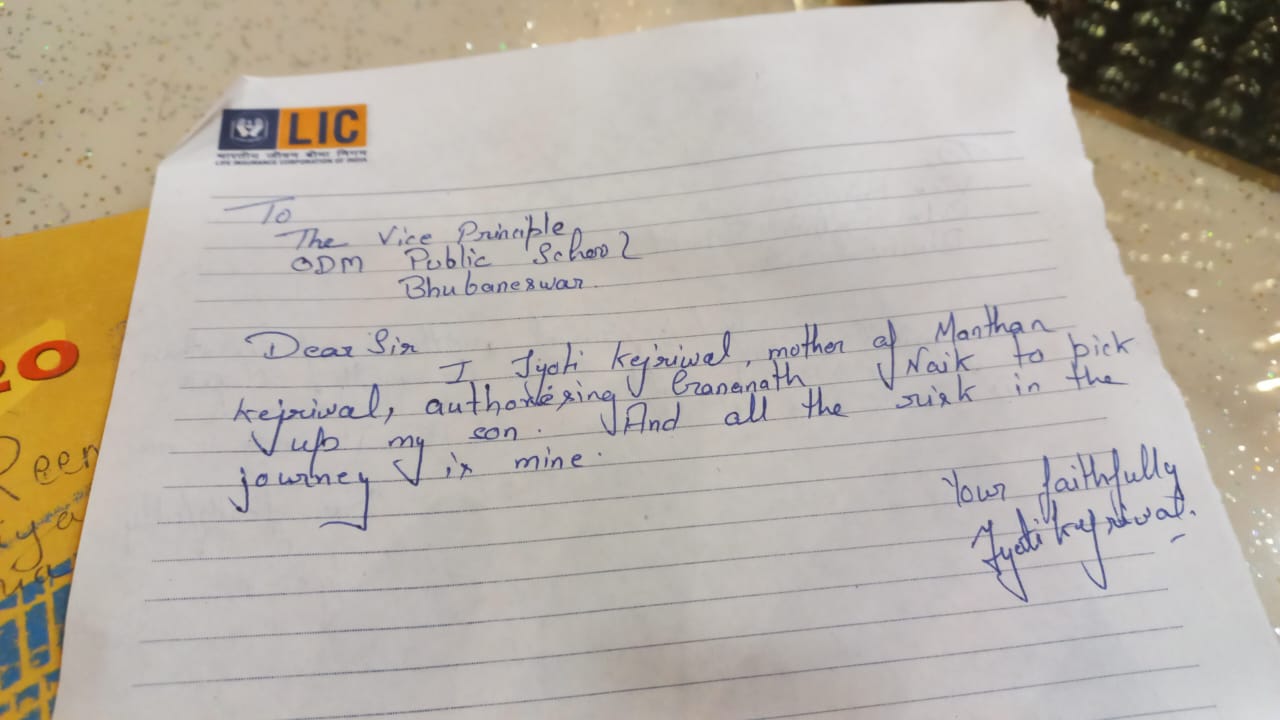 LIC
भारतीय जीवन बीमा निगम
LIFE INSURANCE CORPORATION OF INDIA
To
The Vice Principle
ODM Public School
Bhubaneswar.
Dear Sir
I Jyoti Kejriwal, mother of Manthan
Kejriwal, authorising Naik to pick
up my son. And all the risk in the
journey is mine.
Your faithfully
Jyoti Kejriwal.
20
Reen